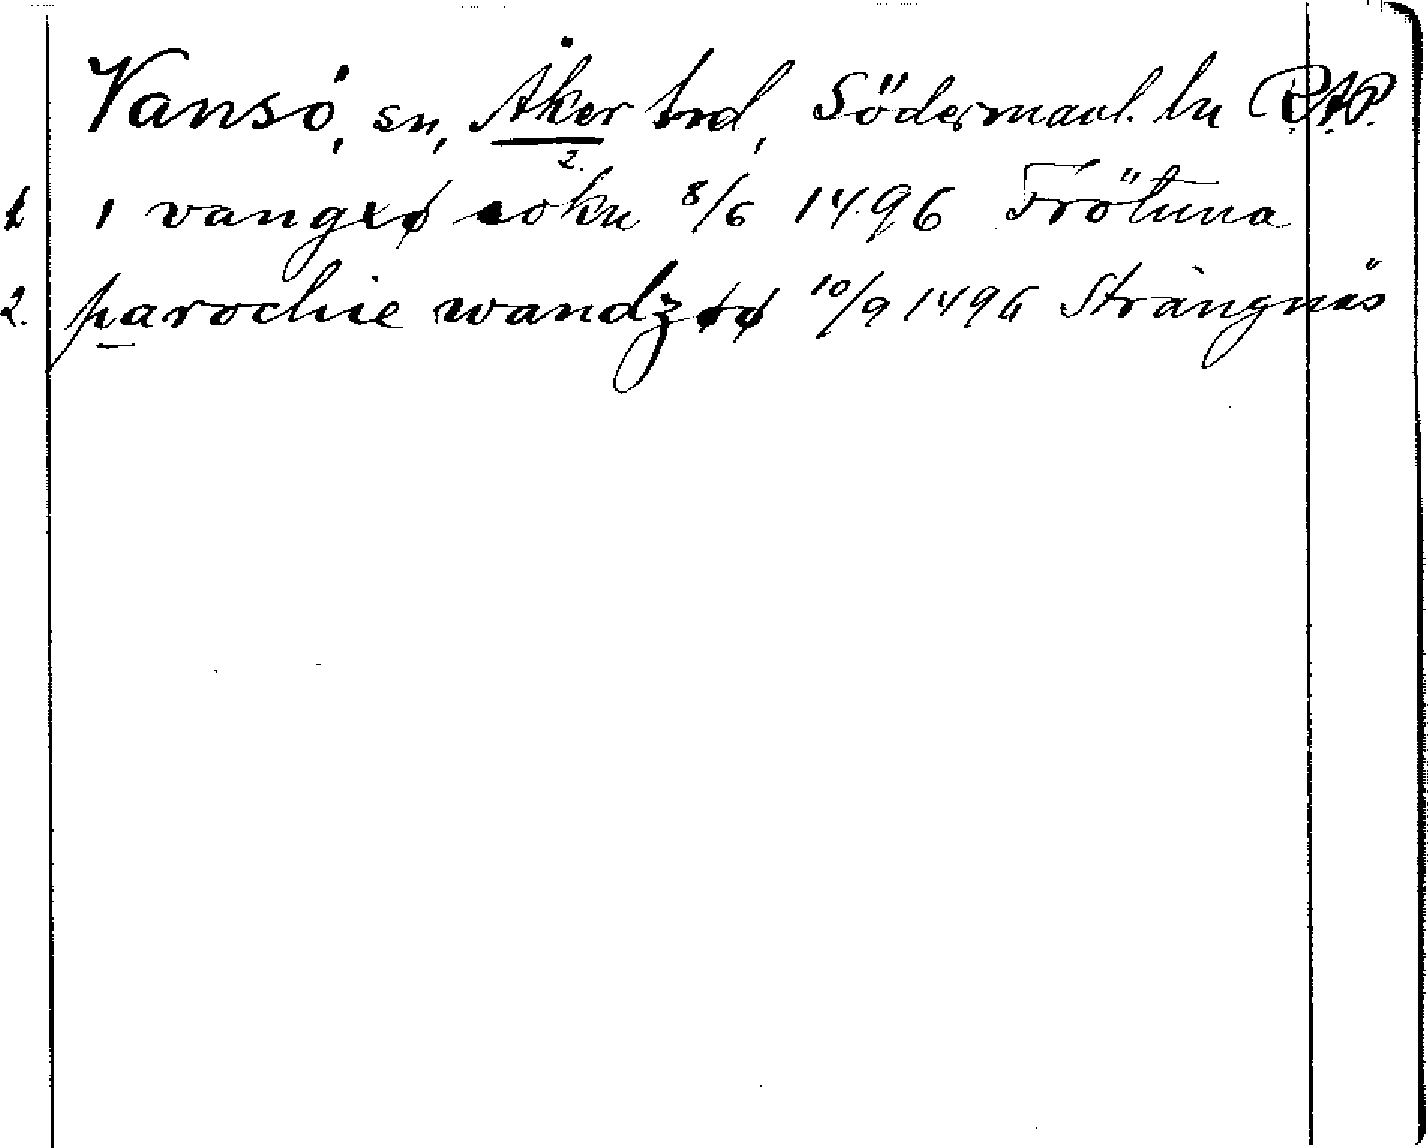 Vansö, sn, Åker hrd, Södermanl. ln R.A.P.
2.
1 i vangxø sokn 8/6 1496 Frötuna
2. parochie wandzøø 10/9 1496 Strängnäs